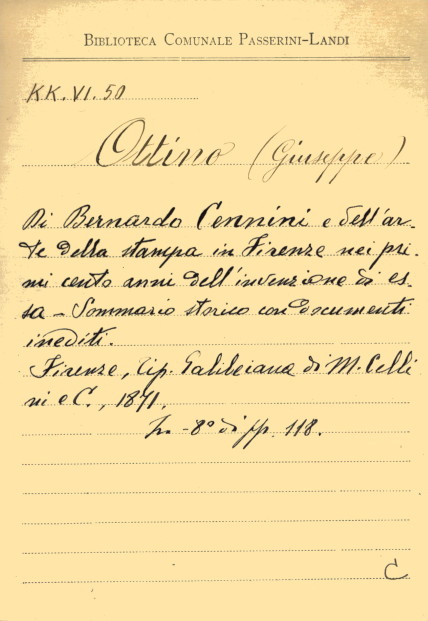 BIBLIOTECA COMUNALE PASSERINI-LANDI
KK.VI.50
Ottino (Giuseppe)
Di Bernardo Cennini e dell'ar-
te della stampa in Firenze nei pri-
mi cento anni dell'invenzione di es-
sa - Sommario storico con documenti
inediti.
Firenze, tip. Galileiana di M. Celli
ni e C., 1871.
In - 8° di pp. 118.
C